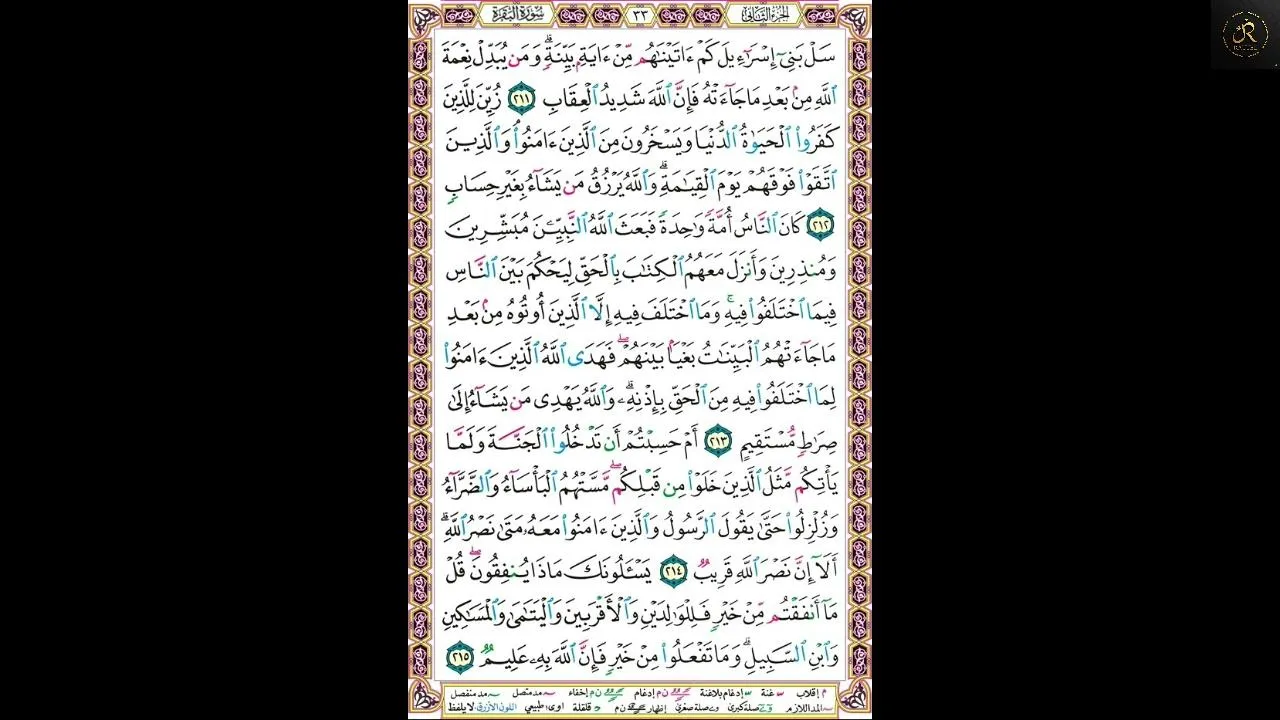 الجزء الثاني ٣٣ سورة البقرة
سَلْ بَنِىٓ إِسْرَٰٓءِيلَ كَمْ ءَاتَيْنَٰهُم مِّنْ ءَايَةٍۭ بَيِّنَةٍۗ وَمَن يُبَدِّلْ نِعْمَةَ
ٱللَّهِ مِنۢ بَعْدِ مَا جَآءَتْهُ فَإِنَّ ٱللَّهَ شَدِيدُ ٱلْعِقَابِ ٢١١ زُيِّنَ لِلَّذِينَ
كَفَرُوا۟ ٱلْحَيَوٰةُ ٱلدُّنْيَا وَيَسْخَرُونَ مِنَ ٱلَّذِينَ ءَامَنُوا۟ۘ وَٱلَّذِينَ
ٱتَّقَوْا۟ فَوْقَهُمْ يَوْمَ ٱلْقِيَٰمَةِۗ وَٱللَّهُ يَرْزُقُ مَن يَشَآءُ بِغَيْرِ حِسَابٍ
٢١٢ كَانَ ٱلنَّاسُ أُمَّةً وَٰحِدَةً فَبَعَثَ ٱللَّهُ ٱلنَّبِيِّۦنَ مُبَشِّرِينَ
وَمُنذِرِينَ وَأَنزَلَ مَعَهُمُ ٱلْكِتَٰبَ بِٱلْحَقِّ لِيَحْكُمَ بَيْنَ ٱلنَّاسِ
فِيمَا ٱخْتَلَفُوا۟ فِيهِۚ وَمَا ٱخْتَلَفَ فِيهِ إِلَّا ٱلَّذِينَ أُوتُوهُ مِنۢ بَعْدِ
مَا جَآءَتْهُمُ ٱلْبَيِّنَٰتُ بَغْيًۢا بَيْنَهُمْۖ فَهَدَى ٱللَّهُ ٱلَّذِينَ ءَامَنُوا۟
لِمَا ٱخْتَلَفُوا۟ فِيهِ مِنَ ٱلْحَقِّ بِإِذْنِهِۦۗ وَٱللَّهُ يَهْدِى مَن يَشَآءُ إِلَىٰ
صِرَٰطٍ مُّسْتَقِيمٍ ٢١٣ أَمْ حَسِبْتُمْ أَن تَدْخُلُوا۟ ٱلْجَنَّةَ وَلَمَّا
يَأْتِكُم مَّثَلُ ٱلَّذِينَ خَلَوْا۟ مِن قَبْلِكُمۖ مَّسَّتْهُمُ ٱلْبَأْسَآءُ وَٱلضَّرَّآءُ
وَزُلْزِلُوا۟ حَتَّىٰ يَقُولَ ٱلرَّسُولُ وَٱلَّذِينَ ءَامَنُوا۟ مَعَهُۥ مَتَىٰ نَصْرُ ٱللَّهِۗ
أَلَآ إِنَّ نَصْرَ ٱللَّهِ قَرِيبٌ ٢١٤ يَسْـَٔلُونَكَ مَاذَا يُنفِقُونَۖ قُلْ
مَآ أَنفَقْتُم مِّنْ خَيْرٍ فَلِلْوَٰلِدَيْنِ وَٱلْأَقْرَبِينَ وَٱلْيَتَٰمَىٰ وَٱلْمَسَٰكِينِ
وَٱبْنِ ٱلسَّبِيلِۗ وَمَا تَفْعَلُوا۟ مِنْ خَيْرٍ فَإِنَّ ٱللَّهَ بِهِۦ عَلِيمٌ ٢١٥
م إقلاب غنة إدغام بلاغنة ن م إدغام ن م إخفاء مد متصل مد منفصل
المد اللازم صلة كبرى صلة صغرى إظهار ن م قلقلة اوى طبيعي اللون الأزرق لا يلفظ